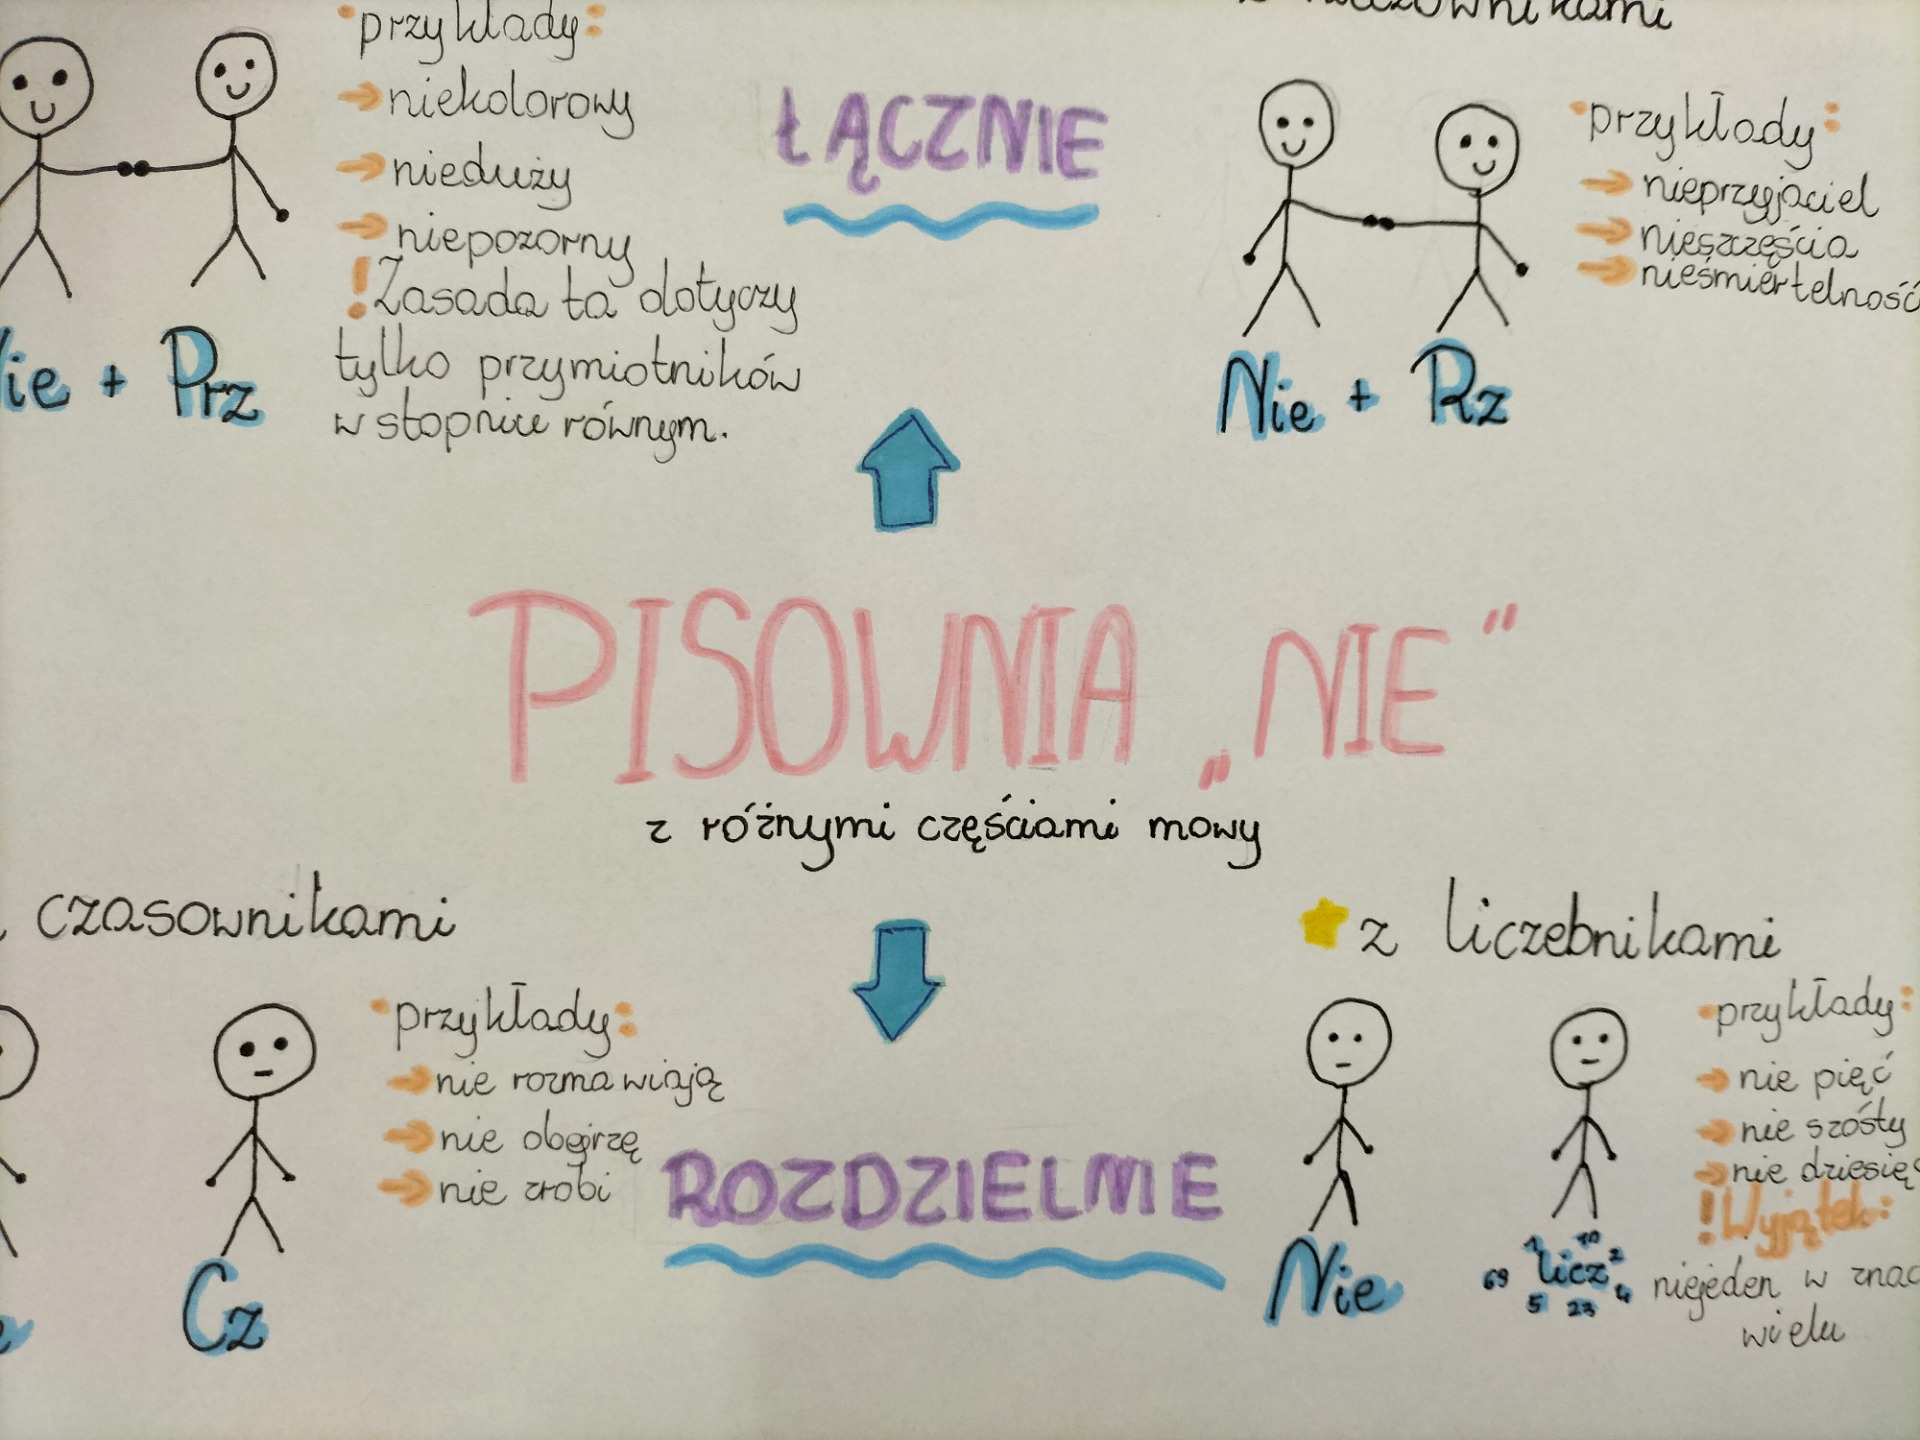 przykłady:
niekolorowy
nieduży
niepozorny
!Zasada ta dotyczy
tylko przymiotników
w stopniu równym.
+ Prz
ŁĄCZNIE
przykłady:
nieprzyjaciel
nieszczęścia
nieśmiertelność
Nie + Rz
PISOWNIA „NIE"
z różnymi częściami mowy
czasownikami
przykłady:
nie rozmawiają
nie obejrzę
nie zrobi
Cz
ROZDZIELNIE
z liczebnikami
przykłady:
nie pięć
nie szósty
nie
!Wyjątek:
niejeden w
wielu
Nie
1 10 2
69 licz 4
5 23